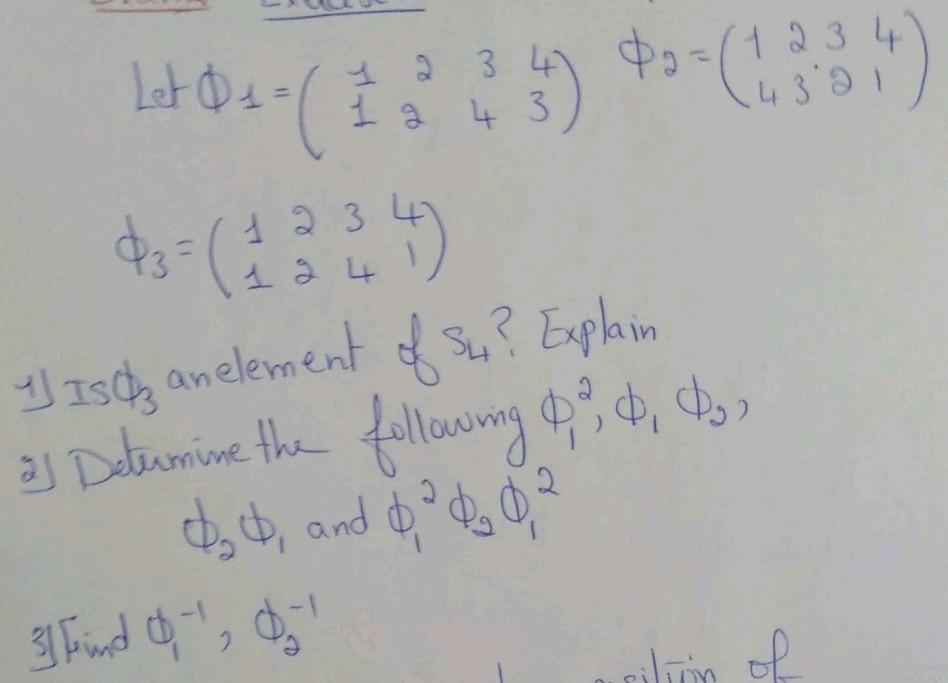 Let Φ1 = ( 1 2 3 4 ) Φ2 = ( 1 2 3 4 )
( 1 2 4 3 ) ( 4 3 2 1 )
Φ3 = ( 1 2 3 4 )
( 1 2 4 1 )
1) Is Φ3 an element of S4? Explain
2) Determine the following Φ1², Φ1 Φ2,
Φ2 Φ1 and Φ1² Φ2 Φ1²
3) Find Φ1⁻¹, Φ2⁻¹
of